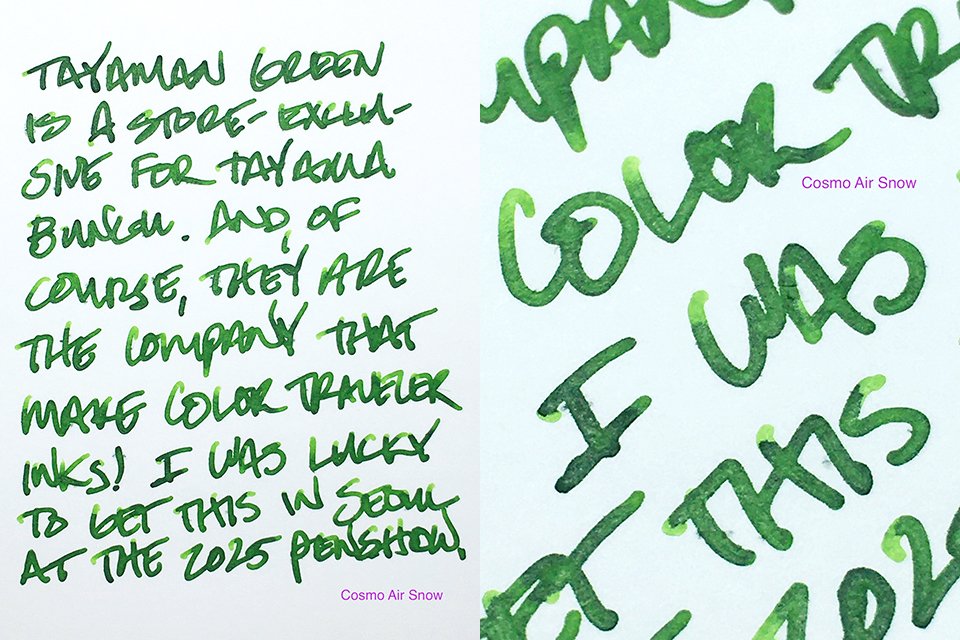 TAYAMAN GREEN
IS A STORE-EXCLU-
SIVE FOR TAYAMA
BUNGU. AND, OF
COURSE, THEY ARE
THE COMPANY THAT
MAKE COLOR TRAVELER
INKS! I WAS LUCKY
TO GET THIS IN SEOUL
AT THE 2025 PENSHOW.
Cosmo Air Snow
MPANY
COLOR TR
Cosmo Air Snow
I WAS
ET THIS
202